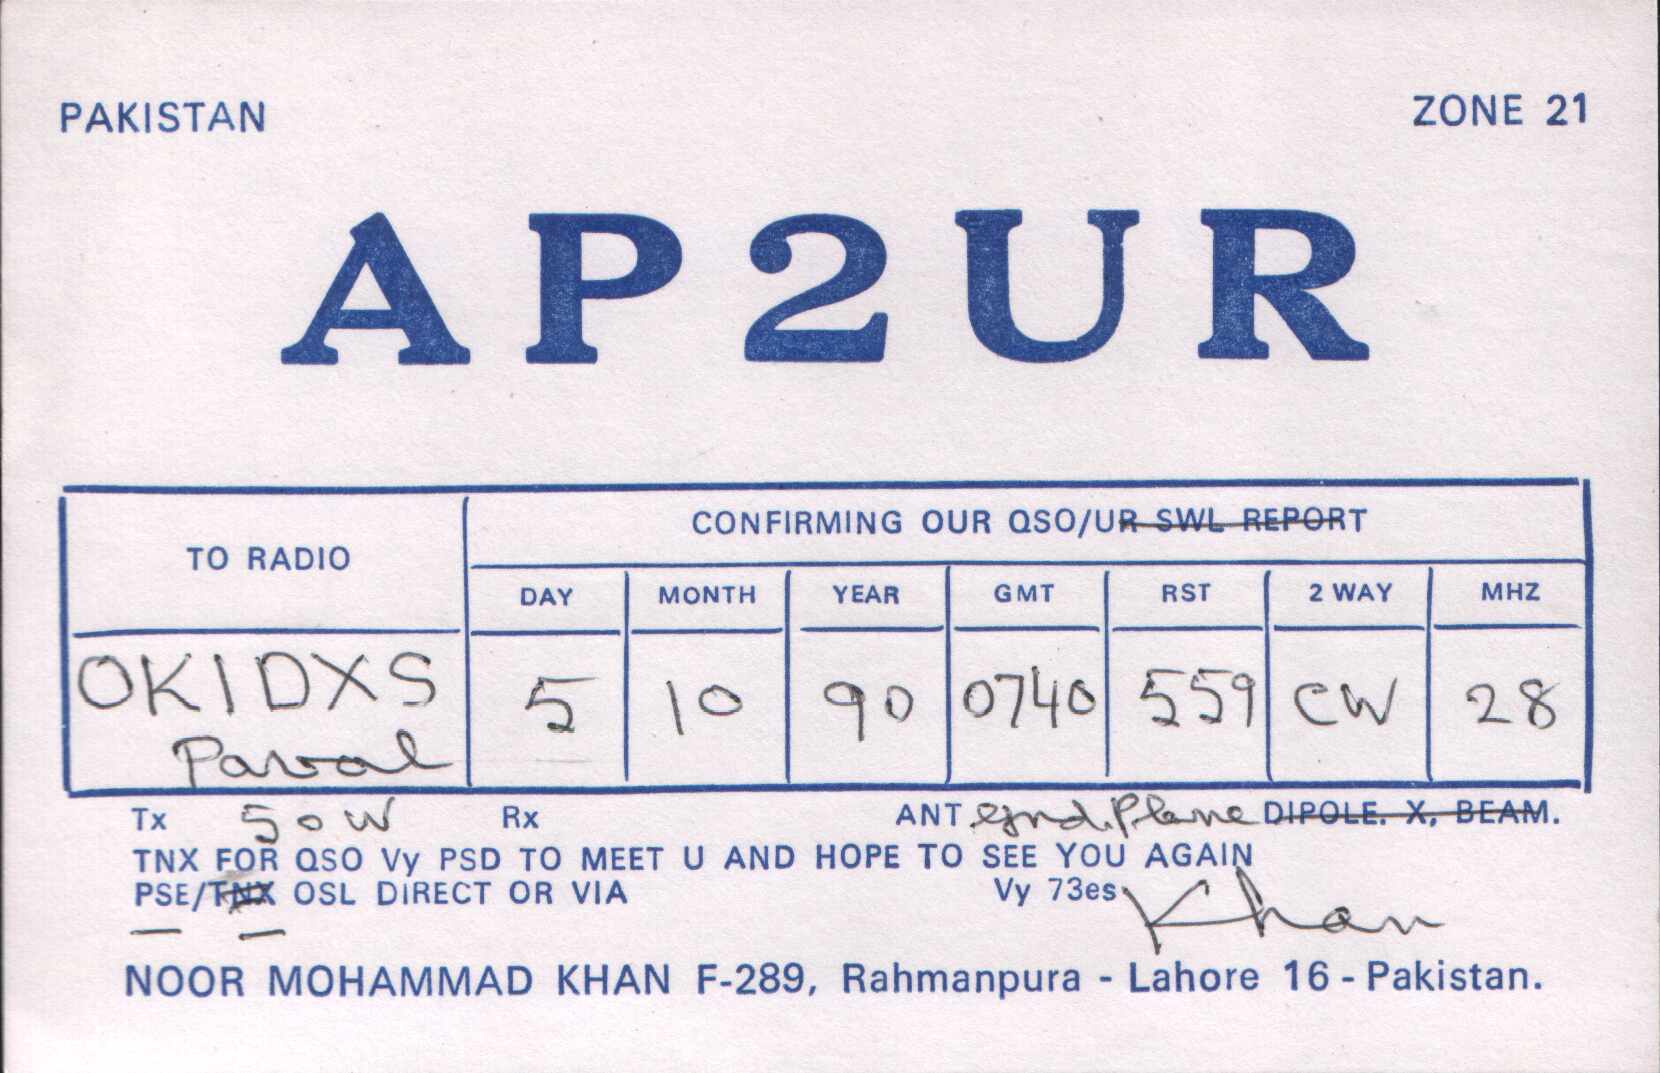 PAKISTAN ZONE 21
AP2UR
TO RADIO CONFIRMING OUR QSO/UR SWL REPORT
DAY MONTH YEAR GMT RST 2 WAY MHZ
OK1DXS 5 10 90 0740 559 CW 28
Paval
Tx 50W Rx ANT Gnd. Plane DIPOLE. X, BEAM.
TNX FOR QSO Vy PSD TO MEET U AND HOPE TO SEE YOU AGAIN
PSE/TNX OSL DIRECT OR VIA Vy 73es Khan
NOOR MOHAMMAD KHAN F-289, Rahmanpura - Lahore 16 - Pakistan.